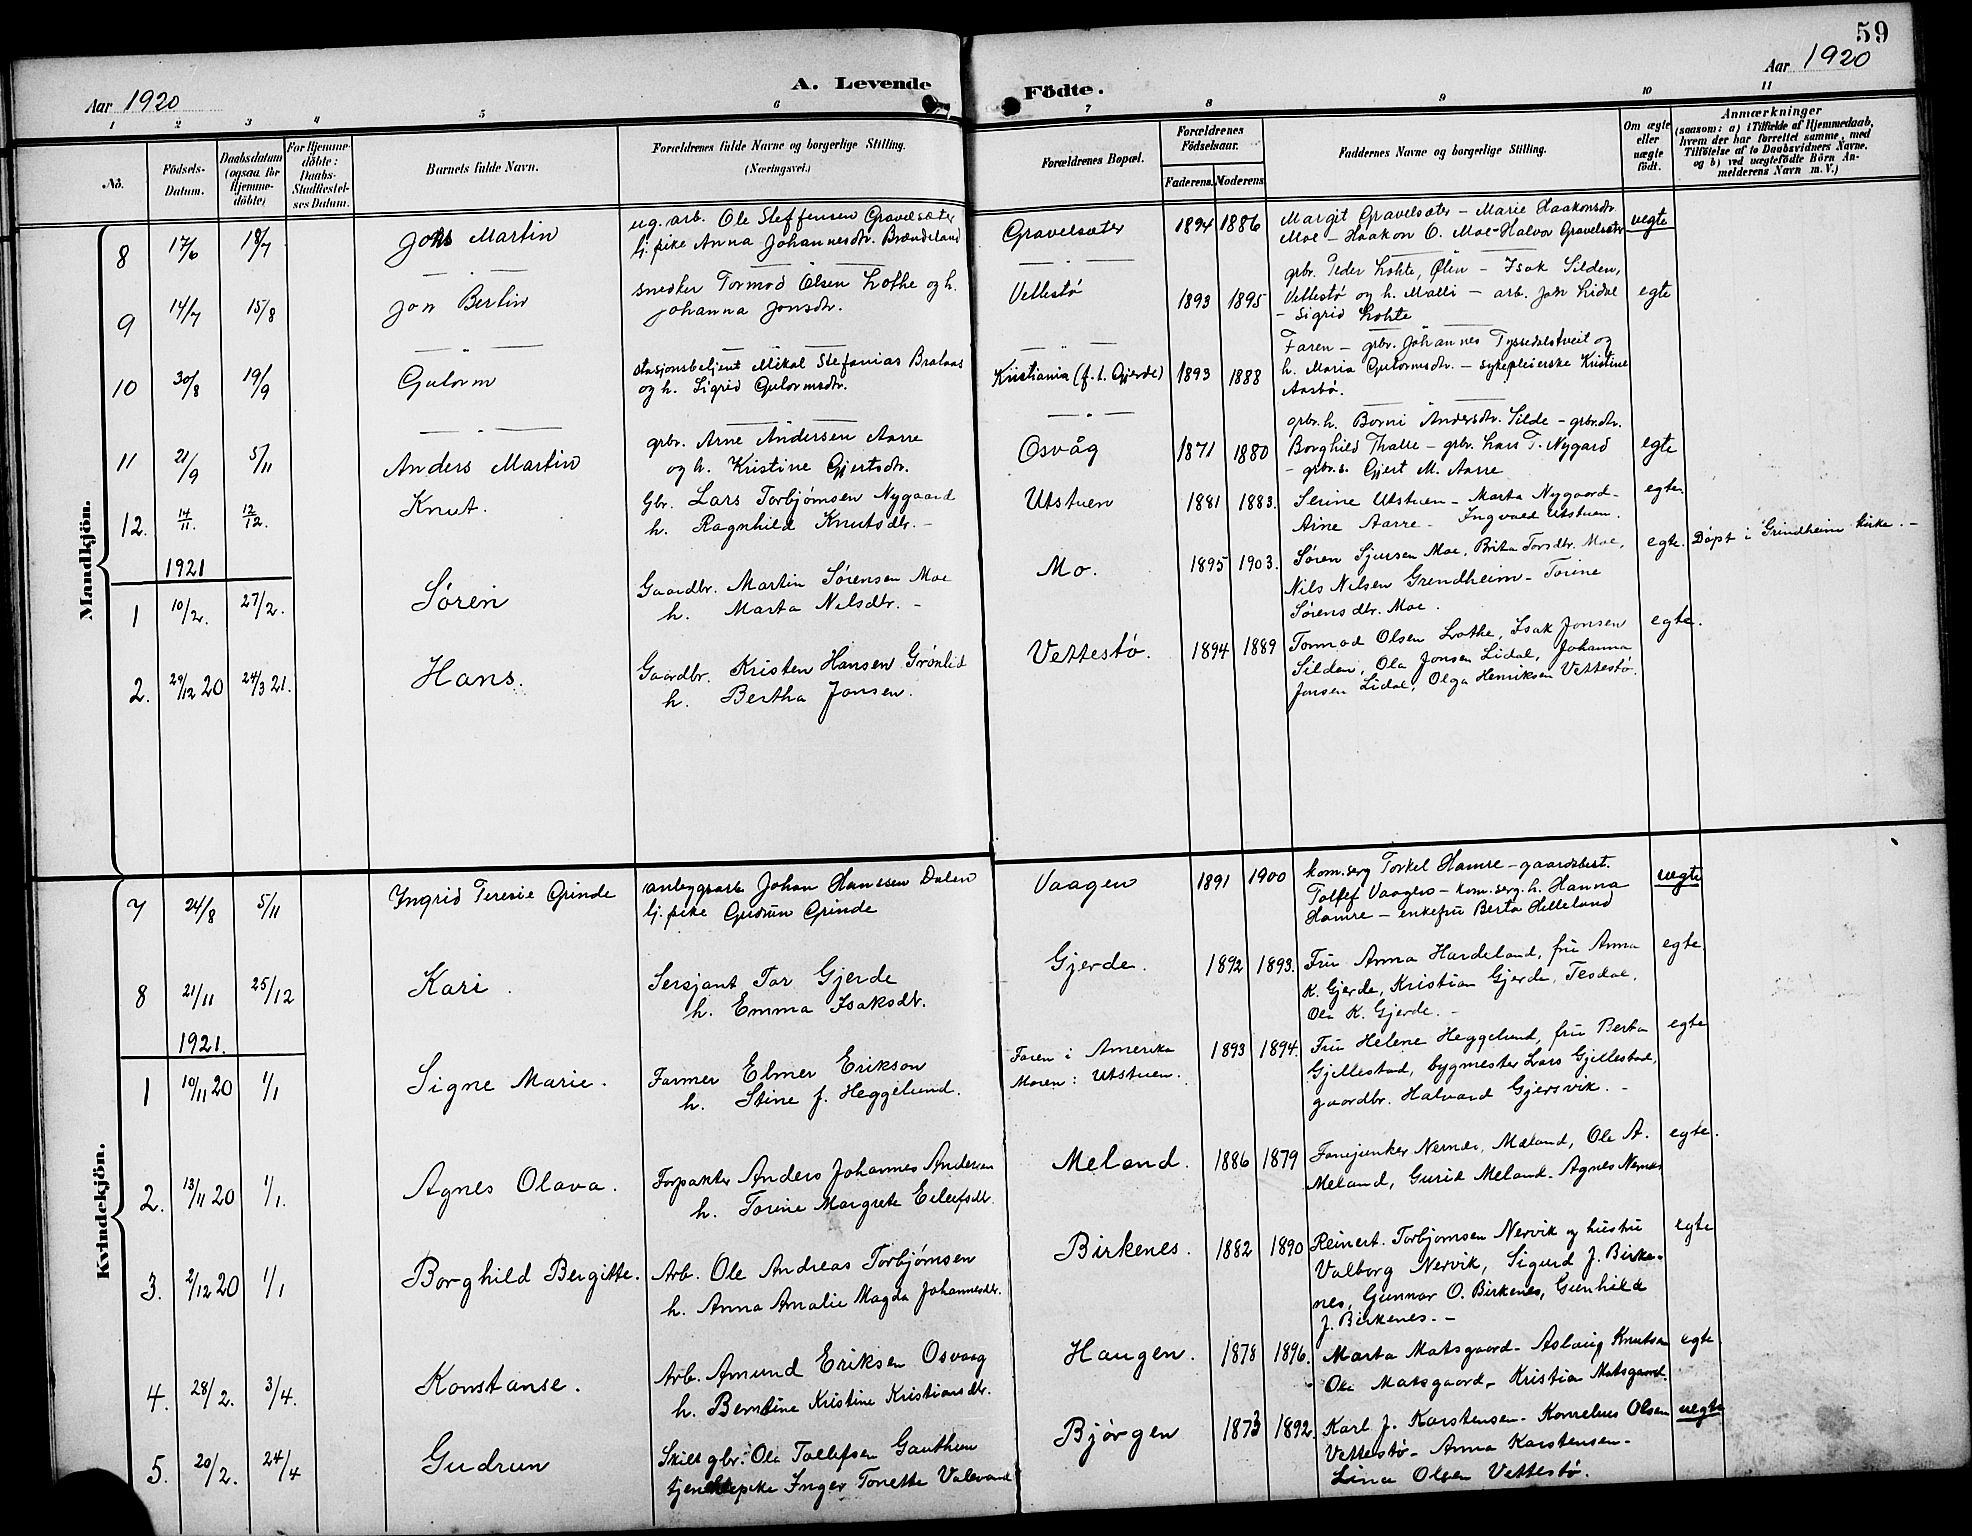 59
Aar 1920
A. Levende Födte.
Aar 1920
1 2 3 4 5 6 7 8 9 10 11
No.
Födsels-Datum.
Daabsdatum (ogsaa for Hjemme-döbte)
For Hjemme-döbte: Daabs-Stadfæstel-ses Datum.
Barnets fulde Navn.
Forældrenes fulde Navne og borgerlige Stilling. (Næringsvei.)
Forældrenes Bopæl.
Forældrenes Födselsaar.
Faderens. Moderens.
Faddernes Navne og borgerlige Stilling.
Om ægte eller uægte födt.
Anmærkninger
(saasom: a) i Tilfælde af Hjemmedaab,
hvem der har forrettet samme, med
Tilföielse af to Daabsvidners Navne,
og b) ved uægtefödte Börn An-
melderens Navn m. V.)
Mandkjön.
8 17/6 18/7 Martin
ug. arb. Ole Steffensen Gravelsæter
tj. pike Anna Johannesdr. Brændeland
Gravelsæter 1894 1886
Margit Gravelsæter – Marie Haakonsdr.
Moe – Haakon O. Moe – Halvor Gravelsæter
uegte
9 14/7 15/8 Jon Bertin
snedker Tormod Olsen Lothe og h.
Johanna Jonsdr.
Vettestø 1893 1895
grbr. Peder Lohte, Ølen – Isak Silden,
Vettestø og h. Malli – arb. Jon Lidal
– Sigrid Lohte
egte
10 30/8 19/9 Gutorm
stasjonsbetjent Mikal Stefanias Brataas
og h. Sigrid Gutormsdr.
Kristiania (f. t. Gjerde) 1893 1888
Faren – grbr. Johannes Tyssedalstveit og
h. Maria Gutormsdr. – sykepleierske Kristine
Aastø.
11 21/9 5/11 Anders Martin
grbr. Arne Andersen Aarre
og h. Kristine Gjertsdr.
Osvåg 1871 1880
grbr. h. Borni Andersdr. Silde – grbr.dr.
Borghild Thalle – grbr. Lars T. Nygard
– grbr.s. Gjert M. Aarre
egte
12. 14/11. 12/12. Knut.
Gbr. Lars Torbjørnsen Nygaard
h. Ragnhild Knutsdtr. –
Utstuen 1881 1883.
Serine Utstuen – Marta Nygaard –
Arne Aarre – Ingvald Utstuen.
egte.
1921
1 10/2. 27/2. Søren
Gaardbr. Martin Sørensen Moe
h. Marta Nilsdtr. –
Mo. 1895 1903.
Søren Sjursen Moe, Brita Torsdtr. Moe,
Nils Nilsen Grendheim – Torine
Sørensdtr. Moe.
egte. Døpt i Grindheim kirke. –
2. 29/12 20 24/3 21. Hans.
Gaardbr. Kristen Hansen Grønlid
h. Bertha Jonsen.
Vettestø. 1894 1889
Tormod Olsen Lothe, Isak Jonsen
Silden, Ola Jonsen Lidal, Johanna
Jonsen Lidal, Olga Henriksen Vettestø.
egte.
Kvindekjön.
7 24/8 5/11 Ingrid Teresie Grinde
anlegsarb Johan Hanssen Dalen
tj. pike Gudrun Grinde
Vaagen 1891 1900
kom.serg Torkel Hamre – gaardsbest.
Tollef Vaagen – kom.serg. h. Hanna
Hamre – enkefru Berta Helleland
uegte
8 21/11 25/12 Kari.
Sersjant Tor Gjerde
h. Emma Isaksdtr.
Gjerde. 1892 1893.
Fru Anna Hardeland, fru Anna
K. Gjerde, Kristian Gjerde, Tesdal,
Ole K. Gjerde. –
egte
1921.
1 10/11 20 1/1 Signe Marie.
Farmer Elmer Erikson
h. Stine f. Heggelund.
Faren i Amerika
Moren: Utstuen.
1893 1894.
Fru Helene Heggelund, fru Berta
Gjellestad, bygmester Lars Gjellestad,
gaardbr. Halvard Gjersvik. –
egte
2. 13/11 20 1/1. Agnes Olava.
Forpakter Anders Johannes Andersen
h. Torine Margrete Eilefsdtr.
Meland. 1886 1879
Fanejunker Nernæs, Mæland, Ole A.
Meland, Gurid Meland – Agnes Nernæs
egte.
3. 2/12 20 1/1 Borghild Bergitte.
Arb. Ole Andreas Torbjørnsen
h. Anna Amalie Magda Johannesdtr.
Birkenes. 1882 1890
Reinert Torbjørnsen Nervik og hustru
Valborg Nervik, Sigurd J. Birke-
nes, Gunnar O. Birkenes, Gunhild
J. Birkenes. –
egte
4. 28/2. 3/4. Konstanse.
Arb. Amund Eriksen Osvaag
h. Berntine Kristine Kristiansdtr.
Haugen. 1878 1896.
Marta Matsgaard – Aslaug Knutsen
Ole Matsgaard – Kristian Matsgaard.
egte
5. 20/2. 24/4 Gudrun
Skilt gbr. Ole Tollefsen Gauthun
tjenestepike Inger Tonette Valevand
Bjørgen 1873 1892.
Karl J. Karstensen – Kornelius Olsen
Vettestø – Anna Karstensen –
Lina Olsen Vettestø.
uegte